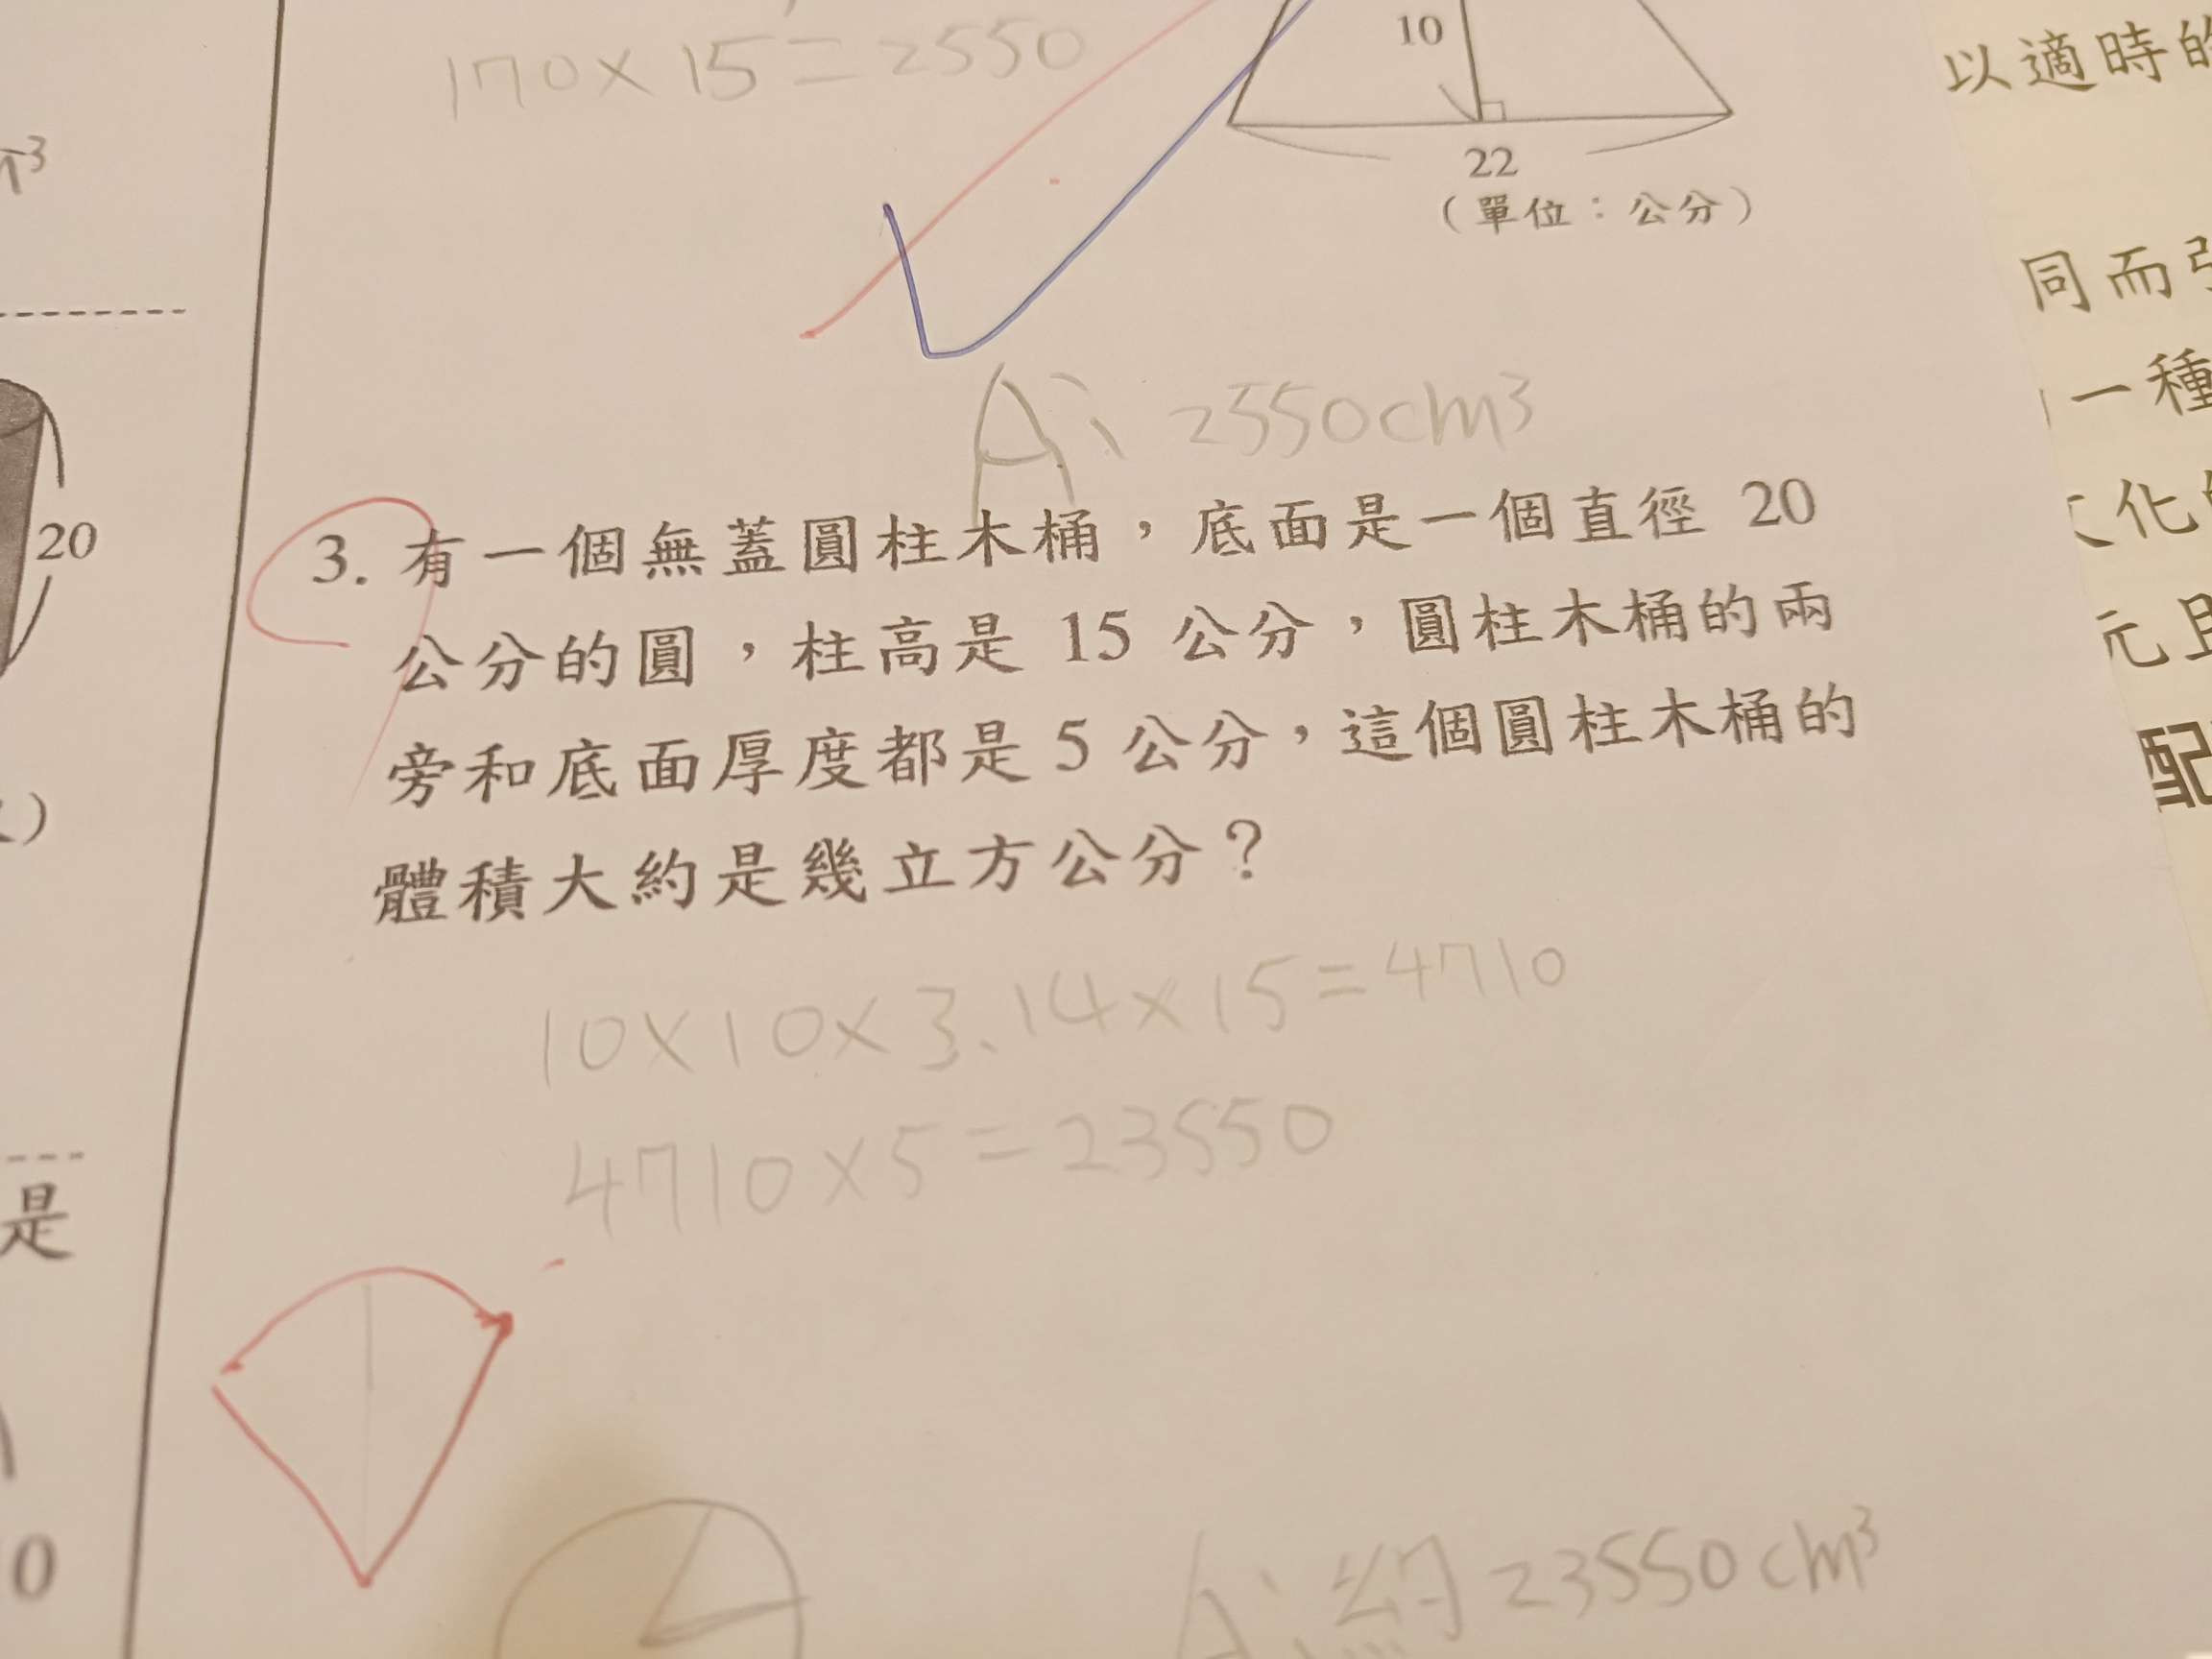 170×15=2550
10
22
(單位：公分)
A: 2550cm³
3. 有一個無蓋圓柱木桶，底面是一個直徑 20
公分的圓，柱高是 15 公分，圓柱木桶的兩
旁和底面厚度都是 5 公分，這個圓柱木桶的
體積大約是幾立方公分？
10×10×3.14×15=4710
4710×5=23550
A: 約23550cm³
20
是
0
以適時的
同而
一種
化
元
配